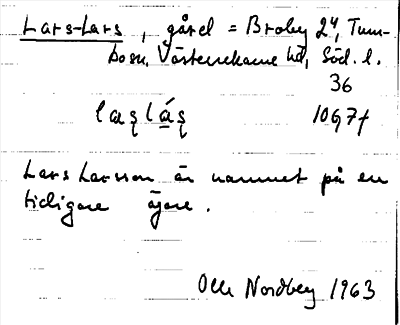 Lars-Lars, gård = Broby 2⁴, Tum-
bosn, Västerrekarne hd, Söd. l.
36
laʂláʂ 10G7f
Lars Larsson är namnet på en
tidigare ägare.
Olle Nordberg 1963